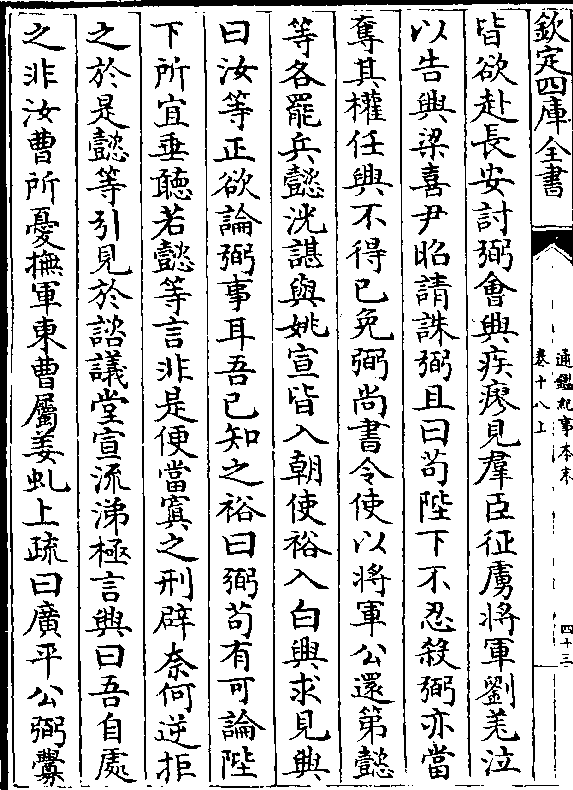 欽定四庫全書
通鑑紀事本末
卷十八上
四十三
皆欲赴長安討弼會興疾瘳見羣臣征虜將軍劉羌泣
以告興梁喜尹昭請誅弼且曰苟陛下不忍殺弼亦當
奪其權任興不得已免弼尚書令使以將軍公還第懿
等各罷兵懿洸諶與姚宣皆入朝使裕入白興求見興
曰汝等正欲論弼事耳吾已知之裕曰弼苟有可論陛
下所宜垂聽若懿等言非是便當寘之刑辟奈何逆拒
之於是懿等引見於諮議堂宣流涕極言興曰吾自處
之非汝曹所憂撫軍東曹屬姜虬上疏曰廣平公弼釁